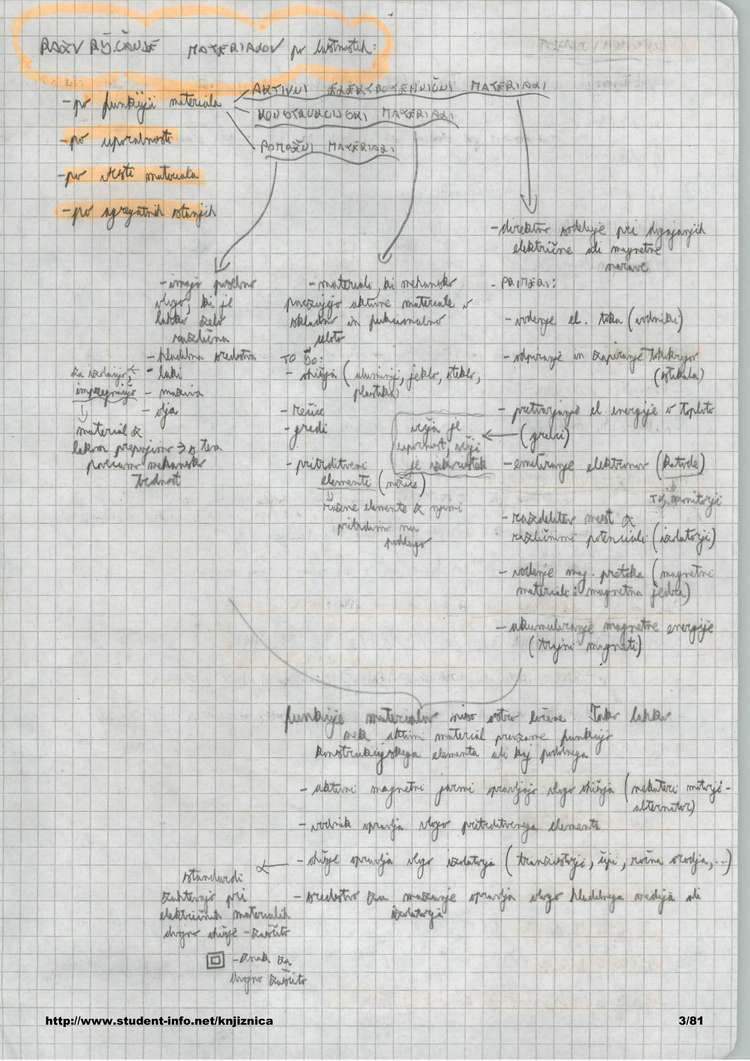 RAZVRŠČANJE MATERIALOV po lastnostih:
- po funkciji materiala
- po uporabnosti
- po vrsti materiala
- po agregatnih stanjih
AKTIVNI ELEKTROTEHNIČNI MATERIALI
KONSTRUKCIJSKI MATERIALI
POMOŽNI MATERIALI
- imajo posebno
vlogo, ki je
lahko zelo
različna
- hladilna sredstva
- laki
- maziva
- olja
za izolacijo
impregnijo
material z
lakom prepojimo → s tem
povečam mehansko
trdnost
- materiali, ki mehansko
povezujejo aktivne materiale v
skladno in funkcionalno
celoto
TO SO:
- ohišja (aluminij, jeklo, steklo,
plastika)
- ročice
- gredi
- pritrditveni
elementi (nosilce)
različne elemente z njimi
pritrdimo na
podlago
- direktno sodeluje pri dogajanjih
električne ali magnetne
narave
- PRIMERI:
- vodenje el. toka (vodniki)
- odpiranje in zapiranje tokokrogov
(stikala)
- pretvarjanje el energije v toploto
(grelci)
višja je
upornost, višji
je
- emitiranje elektronov (katode)
TV, monitorji
- razdelitev mest z
različnimi potenciali (izolatorji)
- vodenje mag. pretoka (magnetni
materiali: magnetna jedra)
- akumuliranje magnetne energije
(trajni magneti)
funkcije materialov niso ostro ločene. Tako lahko
nek aktivni material prevzame funkcijo
konstrukcijskega elementa ali kaj podobnega
- aktivni magnetni jarmi opravljajo vlogo ohišja (nekateri motorji -
alternator)
- vodnik opravlja vlogo pritrditvenega elementa
- ohišje opravlja vlogo izolatorja (tranzistorji, čipi, ročna orodja,...)
- sredstvo za mazanje opravlja vlogo hladilnega medija ali
izolatorja
standardi
zahtevajo pri
električnih materialih
dvojno ohišje - zaščito
- znak za
dvojno zaščito
http://www.student-info.net/knjiznica
3/81